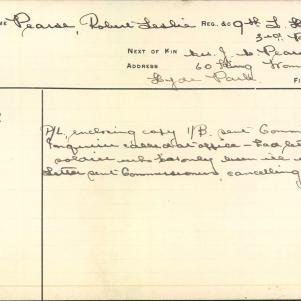 Pearse, Robert Leslie REG. &C 9th L. H
3rd
NEXT OF KIN Mrs. J. Pearse
ADDRESS 60 King
Hyde Park. FI
P/L, enclosing copy 1/B. sent Comm
Enquirer called at office — had let
soldier who had only been ill
Letter sent Commissioners, cancelling